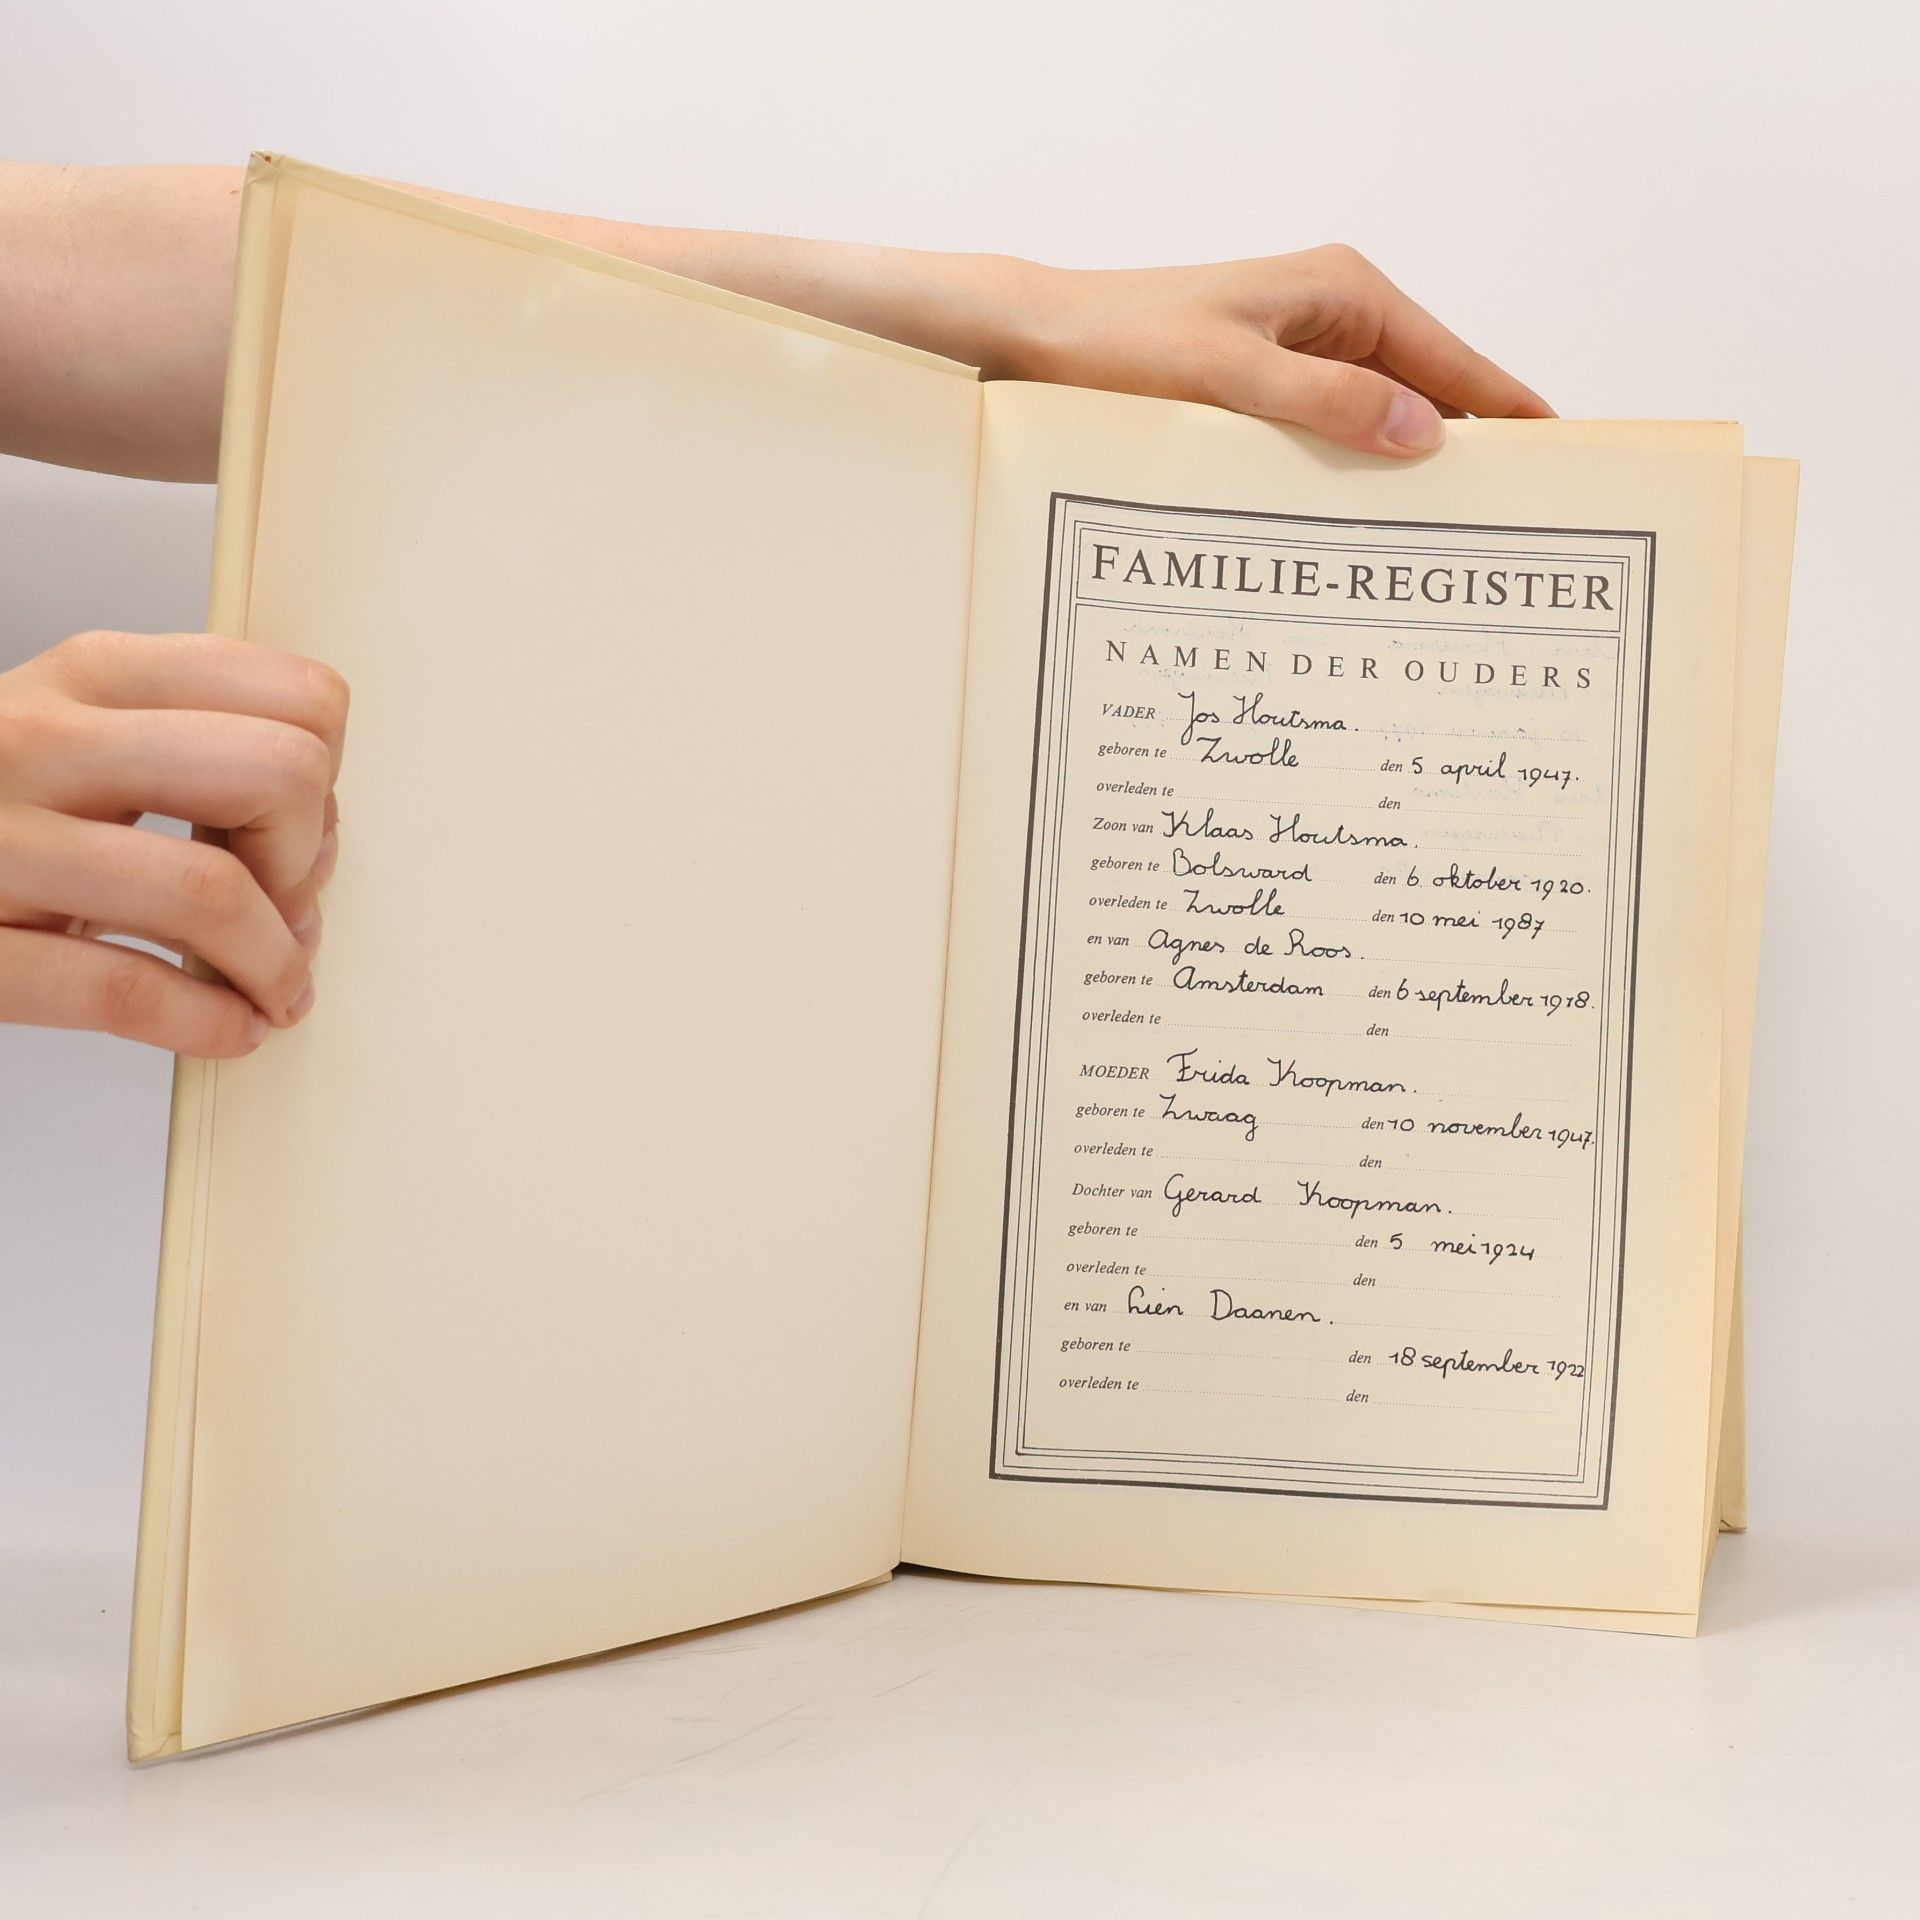 FAMILIE-REGISTER
NAMEN DER OUDERS
VADER Jos Houtsma.
geboren te Zwolle den 5 april 1947.
overleden te den
Zoon van Klaas Houtsma.
geboren te Bolsward den 6 oktober 1920.
overleden te Zwolle den 10 mei 1987
en van Agnes de Roos.
geboren te Amsterdam den 6 september 1918.
overleden te den
MOEDER Frida Koopman.
geboren te Zwaag den 10 november 1947.
overleden te den
Dochter van Gerard Koopman.
geboren te den 5 mei 1924
overleden te den
en van Lien Daanen.
geboren te den 18 september 1922
overleden te den